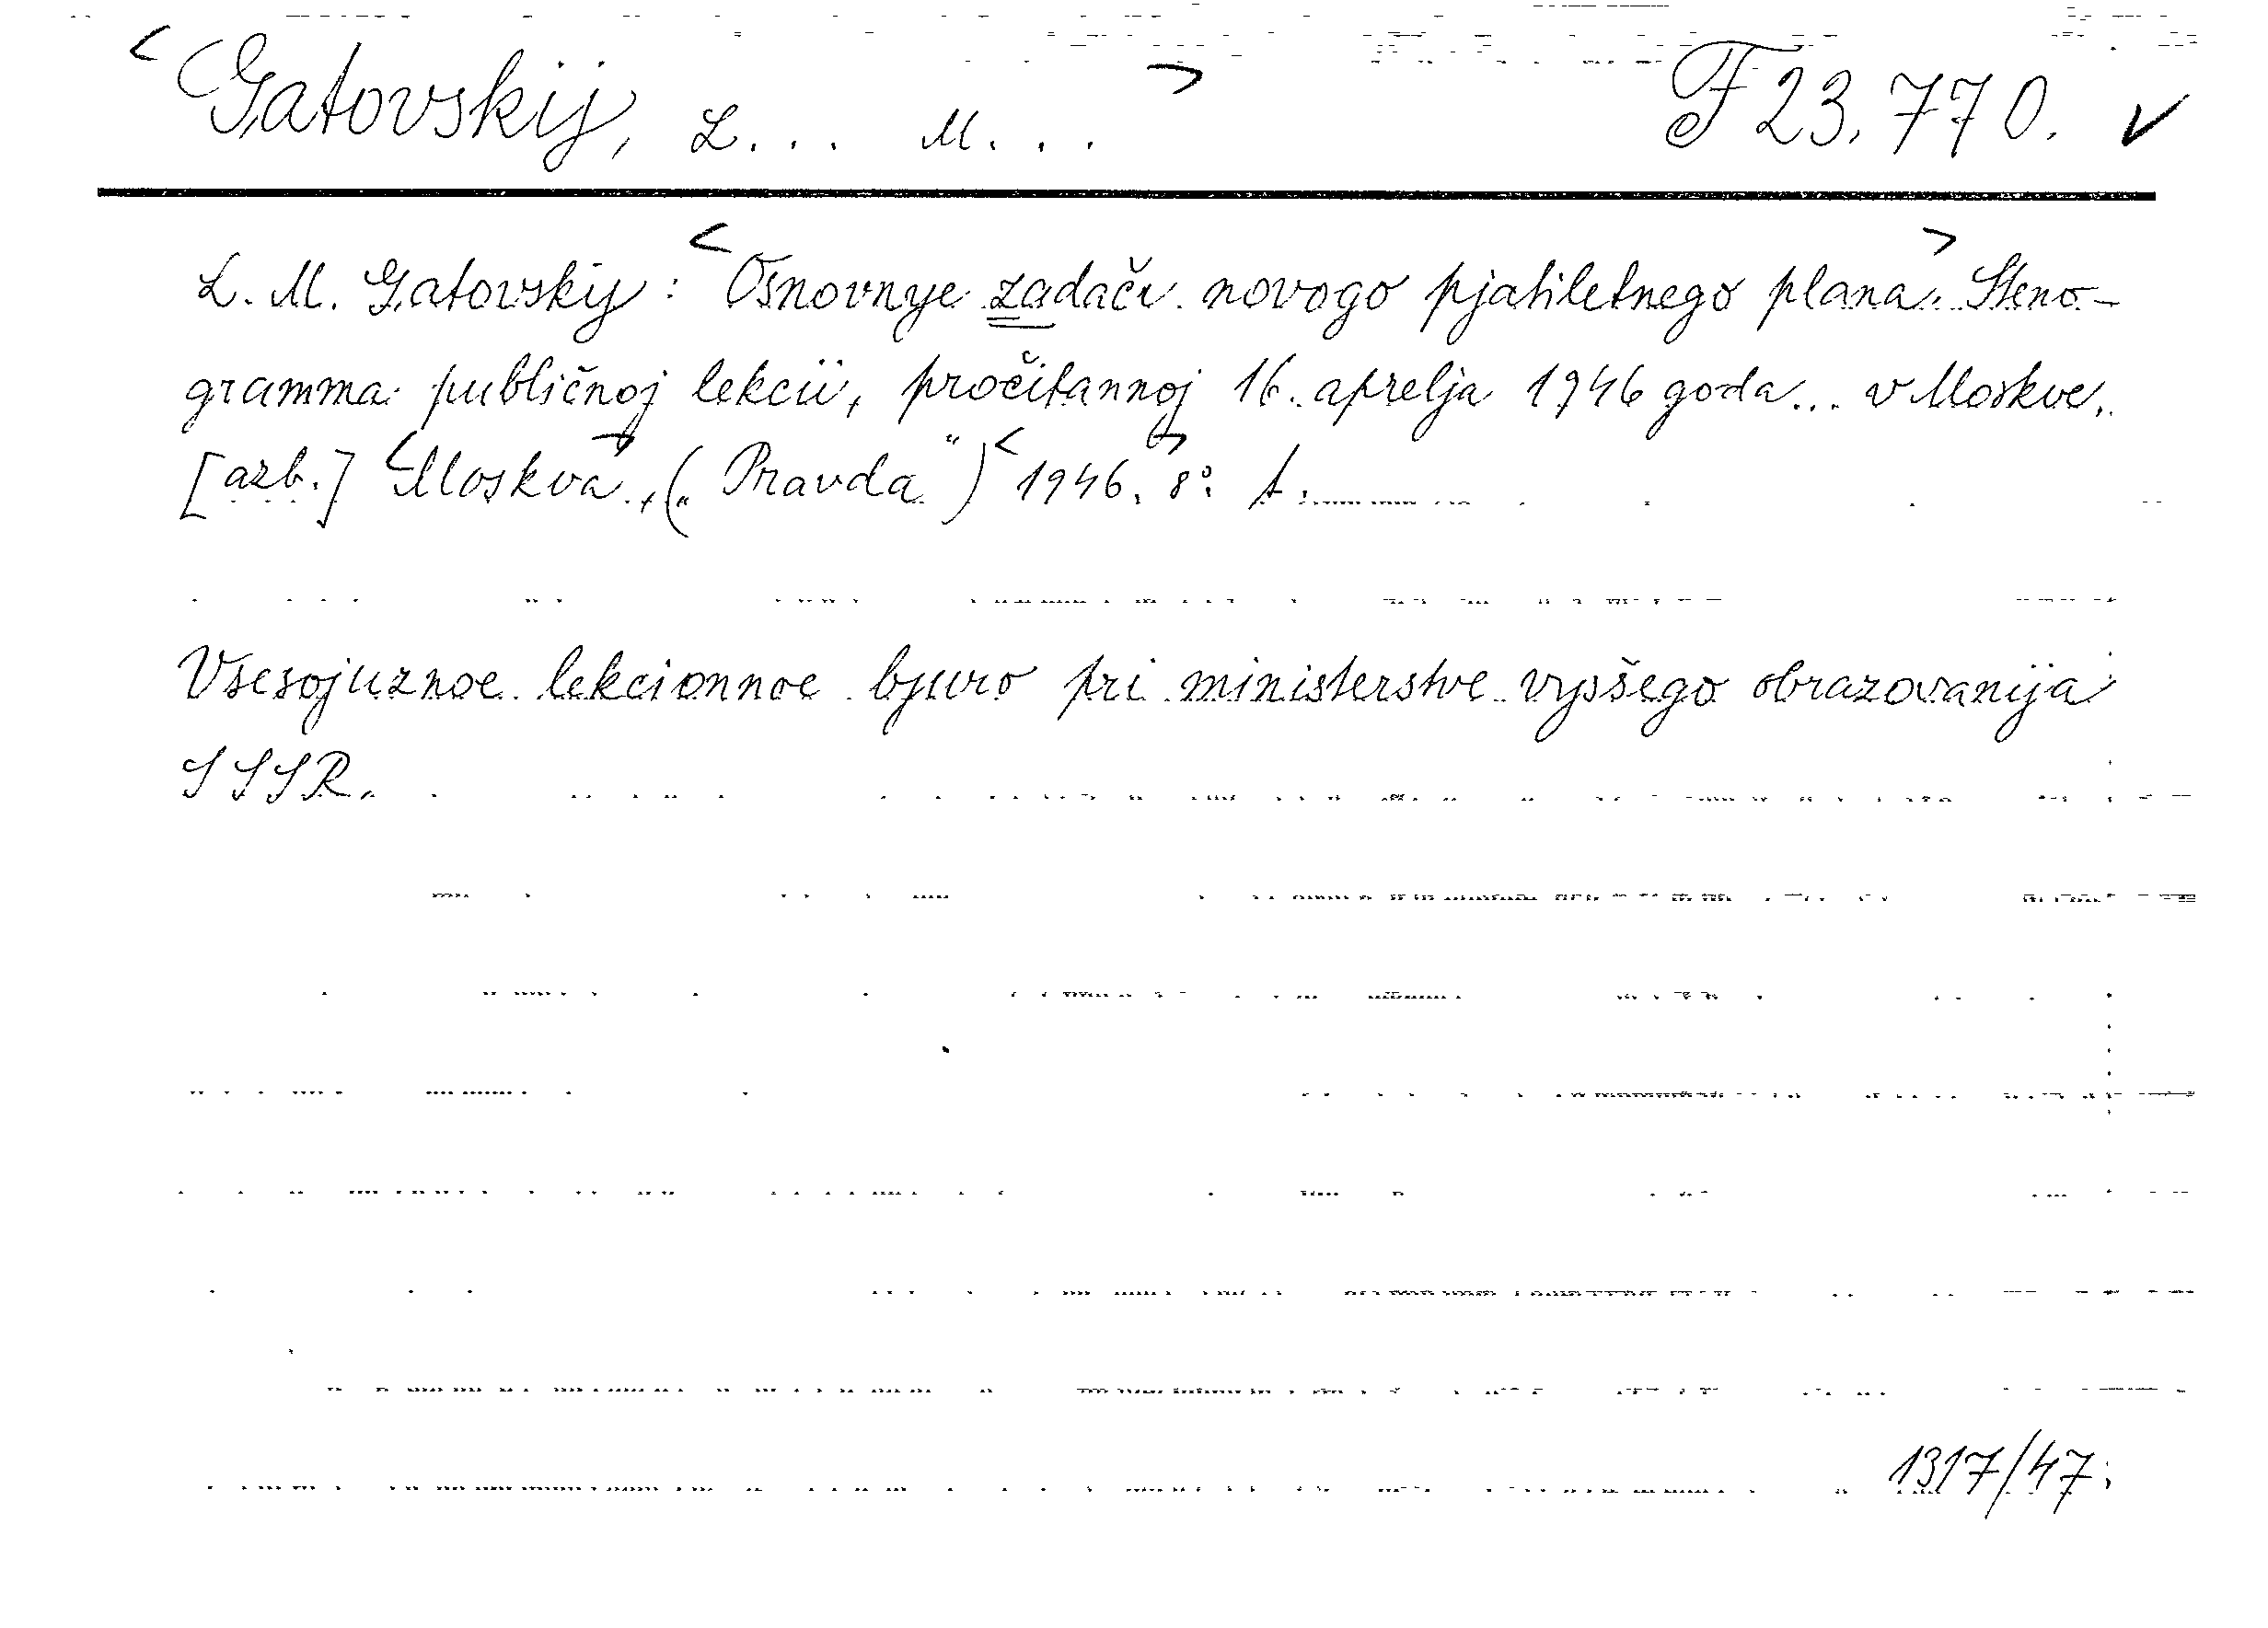 <Gatovskij, L... M...> F 23.770. ✓
L. M. Gatovskij: <Osnovnye zadači novogo pjatiletnego plana.> Steno-
gramma publičnoj lekcii, pročitannoj 16. aprelja 1946 goda... v Moskve.
[azb.] <Moskva>, („Pravda“) <1946. 8°.> 1.
Vsesojuznoe lekcionnoe bjuro pri ministerstve vysšego obrazovanija
SSSR.
1317/47.